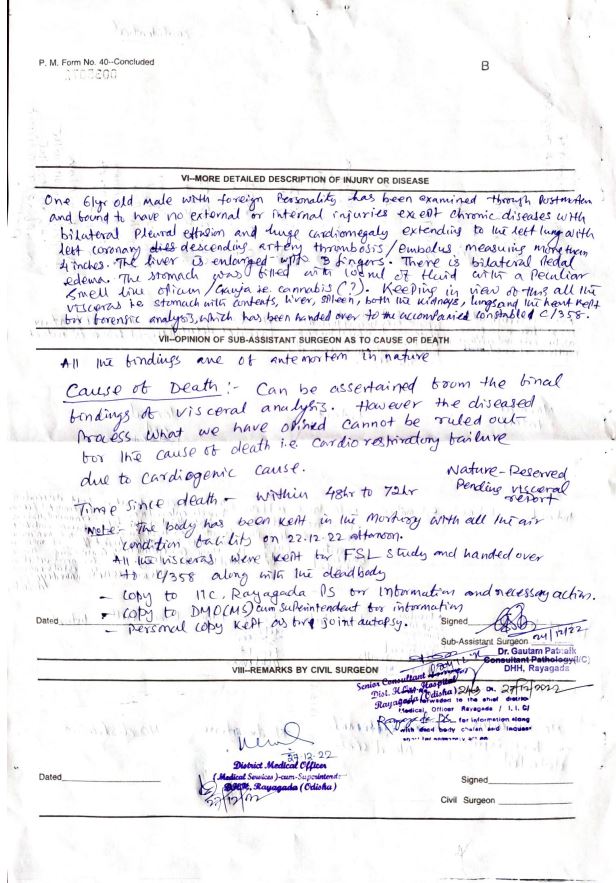 P. M. Form No. 40--Concluded
B
VI--MORE DETAILED DESCRIPTION OF INJURY OR DISEASE
One 61yr old male with foreign Personality has been examined through Postmortem
and found to have no external or internal injuries except chronic diseases with
bilateral Pleural effusion and huge cardiomegaly extending to the left lung with
left coronary descending artery thrombosis/embolus measuring more than
4 inches. The liver is enlarged upto 3 fingers. There is bilateral Pedal
edema. The stomach was filled with 100ml of fluid with a Peculiar
Smell like opium/Ganja i.e. cannabis (?). Keeping in view of this all the
visceras i.e stomach with contents, liver, spleen, both the kidneys, lungs and the heart kept
for forensic analysis, which has been handed over to the accompanied constable C/358.
VII--OPINION OF SUB-ASSISTANT SURGEON AS TO CAUSE OF DEATH
All the findings are of antemortem in nature
Cause of Death :- Can be assertained from the final
findings of visceral analysis. However the diseased
Process what we have opined cannot be ruled out
for the cause of death i.e. Cardiorespiratory failure
due to cardiogenic cause.
Nature - Reserved
Pending visceral
report
Time since death - within 48hr to 72hr
Note - The body has been kept in the Mortuary with all the air
condition facility on 22.12.22 afternoon.
All the visceras were kept for FSL study and handed over
to C/358 along with the deadbody
- Copy to IIC, Rayagada PS for Information and necessary action.
- Copy to DMO(MS) cum superintendent for information
- Personal copy kept as two joint autopsy.
Dated
Signed
24/12/22
Sub-Assistant Surgeon
Dr. Gautam Patnaik
Consultant Pathology(I/C)
DHH, Rayagada
VIII--REMARKS BY CIVIL SURGEON
Senior Consultant
Dist. H.Qrs. Hospital
Rayagada (Odisha)
on 27/12/2022
forwarded to the chief district
Medical, Officer Rayagada / I. I. C/
Rayagada PS for information along
with dead body chalan and inquest
27.12.22
District Medical Officer
(Medical Services)-cum-Superintendent
DHH, Rayagada (Odisha)
27/12/22
Dated
Signed
Civil Surgeon